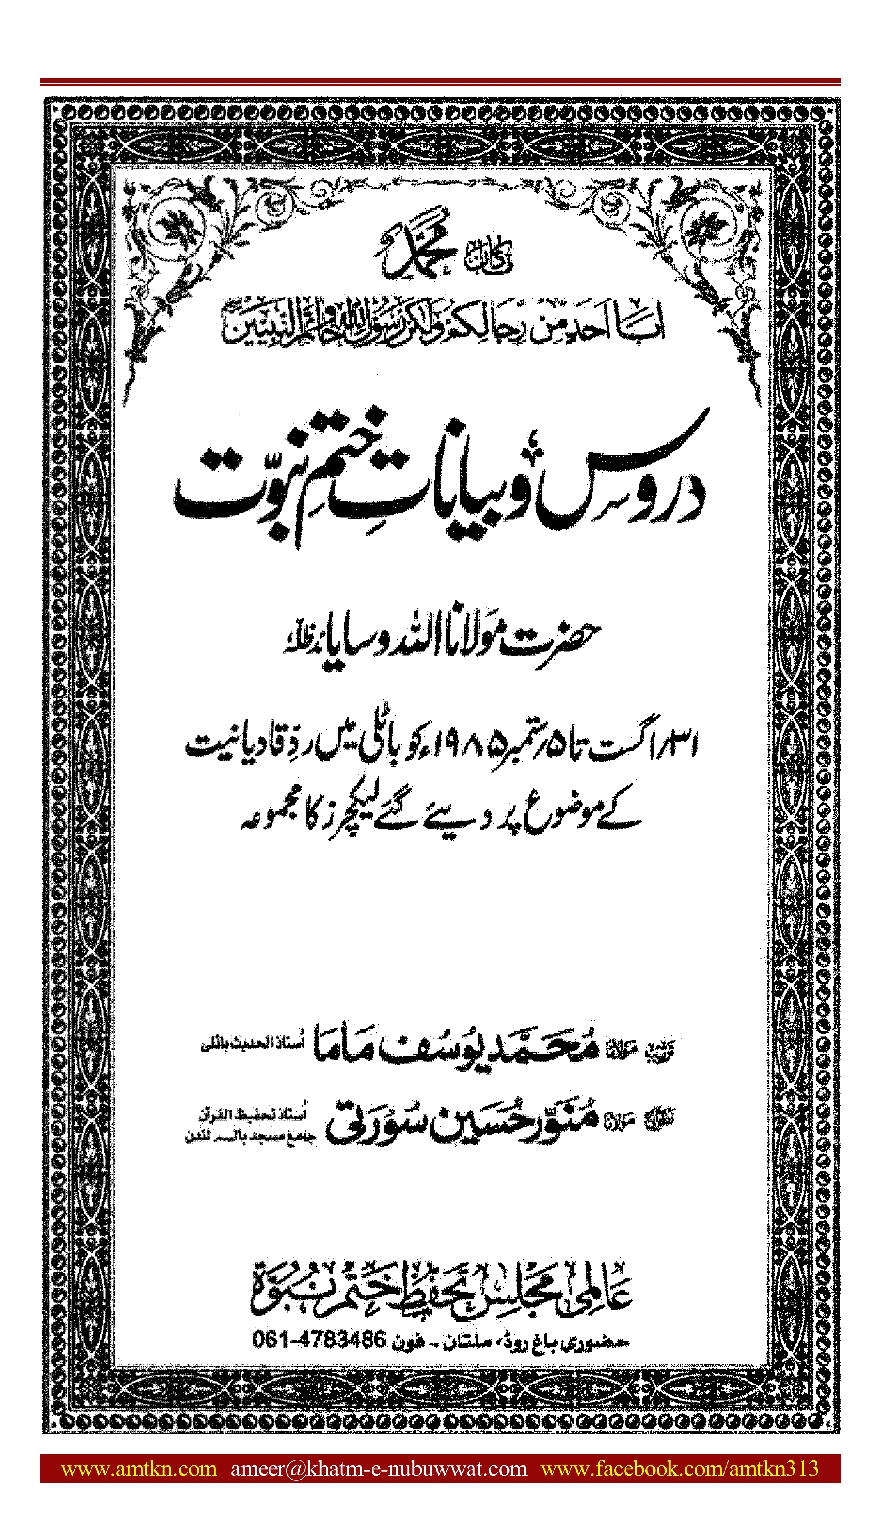 مَا كَانَ مُحَمَّدٌ
اَبَا اَحَدٍ مِّنْ رِّجَالِكُمْ وَلٰكِنْ رَّسُوْلَ اللّٰهِ وَخَاتَمَ النَّبِيّٖنَ
دروس و بیاناتِ ختمِ نبوّت
حضرت مولانا اللہ وسایا مدظلہ
۳۱/اگست تا ۵/ستمبر ۱۹۸۵ء کو باٹلی میں ردِّ قادیانیت
کے موضوع پر دیئے گئے لیکچرز کا مجموعہ
مولانا مُحَمَّد یُوسُف مَامَا اُستاذ الحدیث باٹلی
مولانا مُنَوَّر حُسَین سُوْرَتی اُستاذ تحفیظ القرآن
جامع مسجد بالہم لندن
عَالمِی مَجلسِ تحفّظِ ختم نُبوّة
حضوری باغ روڈ، ملتان ۔ فون 061-4783486
www.amtkn.com ameer@khatm-e-nubuwwat.com www.facebook.com/amtkn313